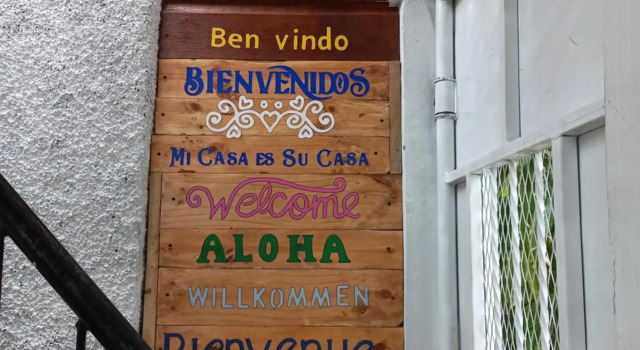 Ben vindo
BIENVENIDOS
MI CASA ES SU CASA
Welcome
ALOHA
WILLKOMMEN
Bienvenue